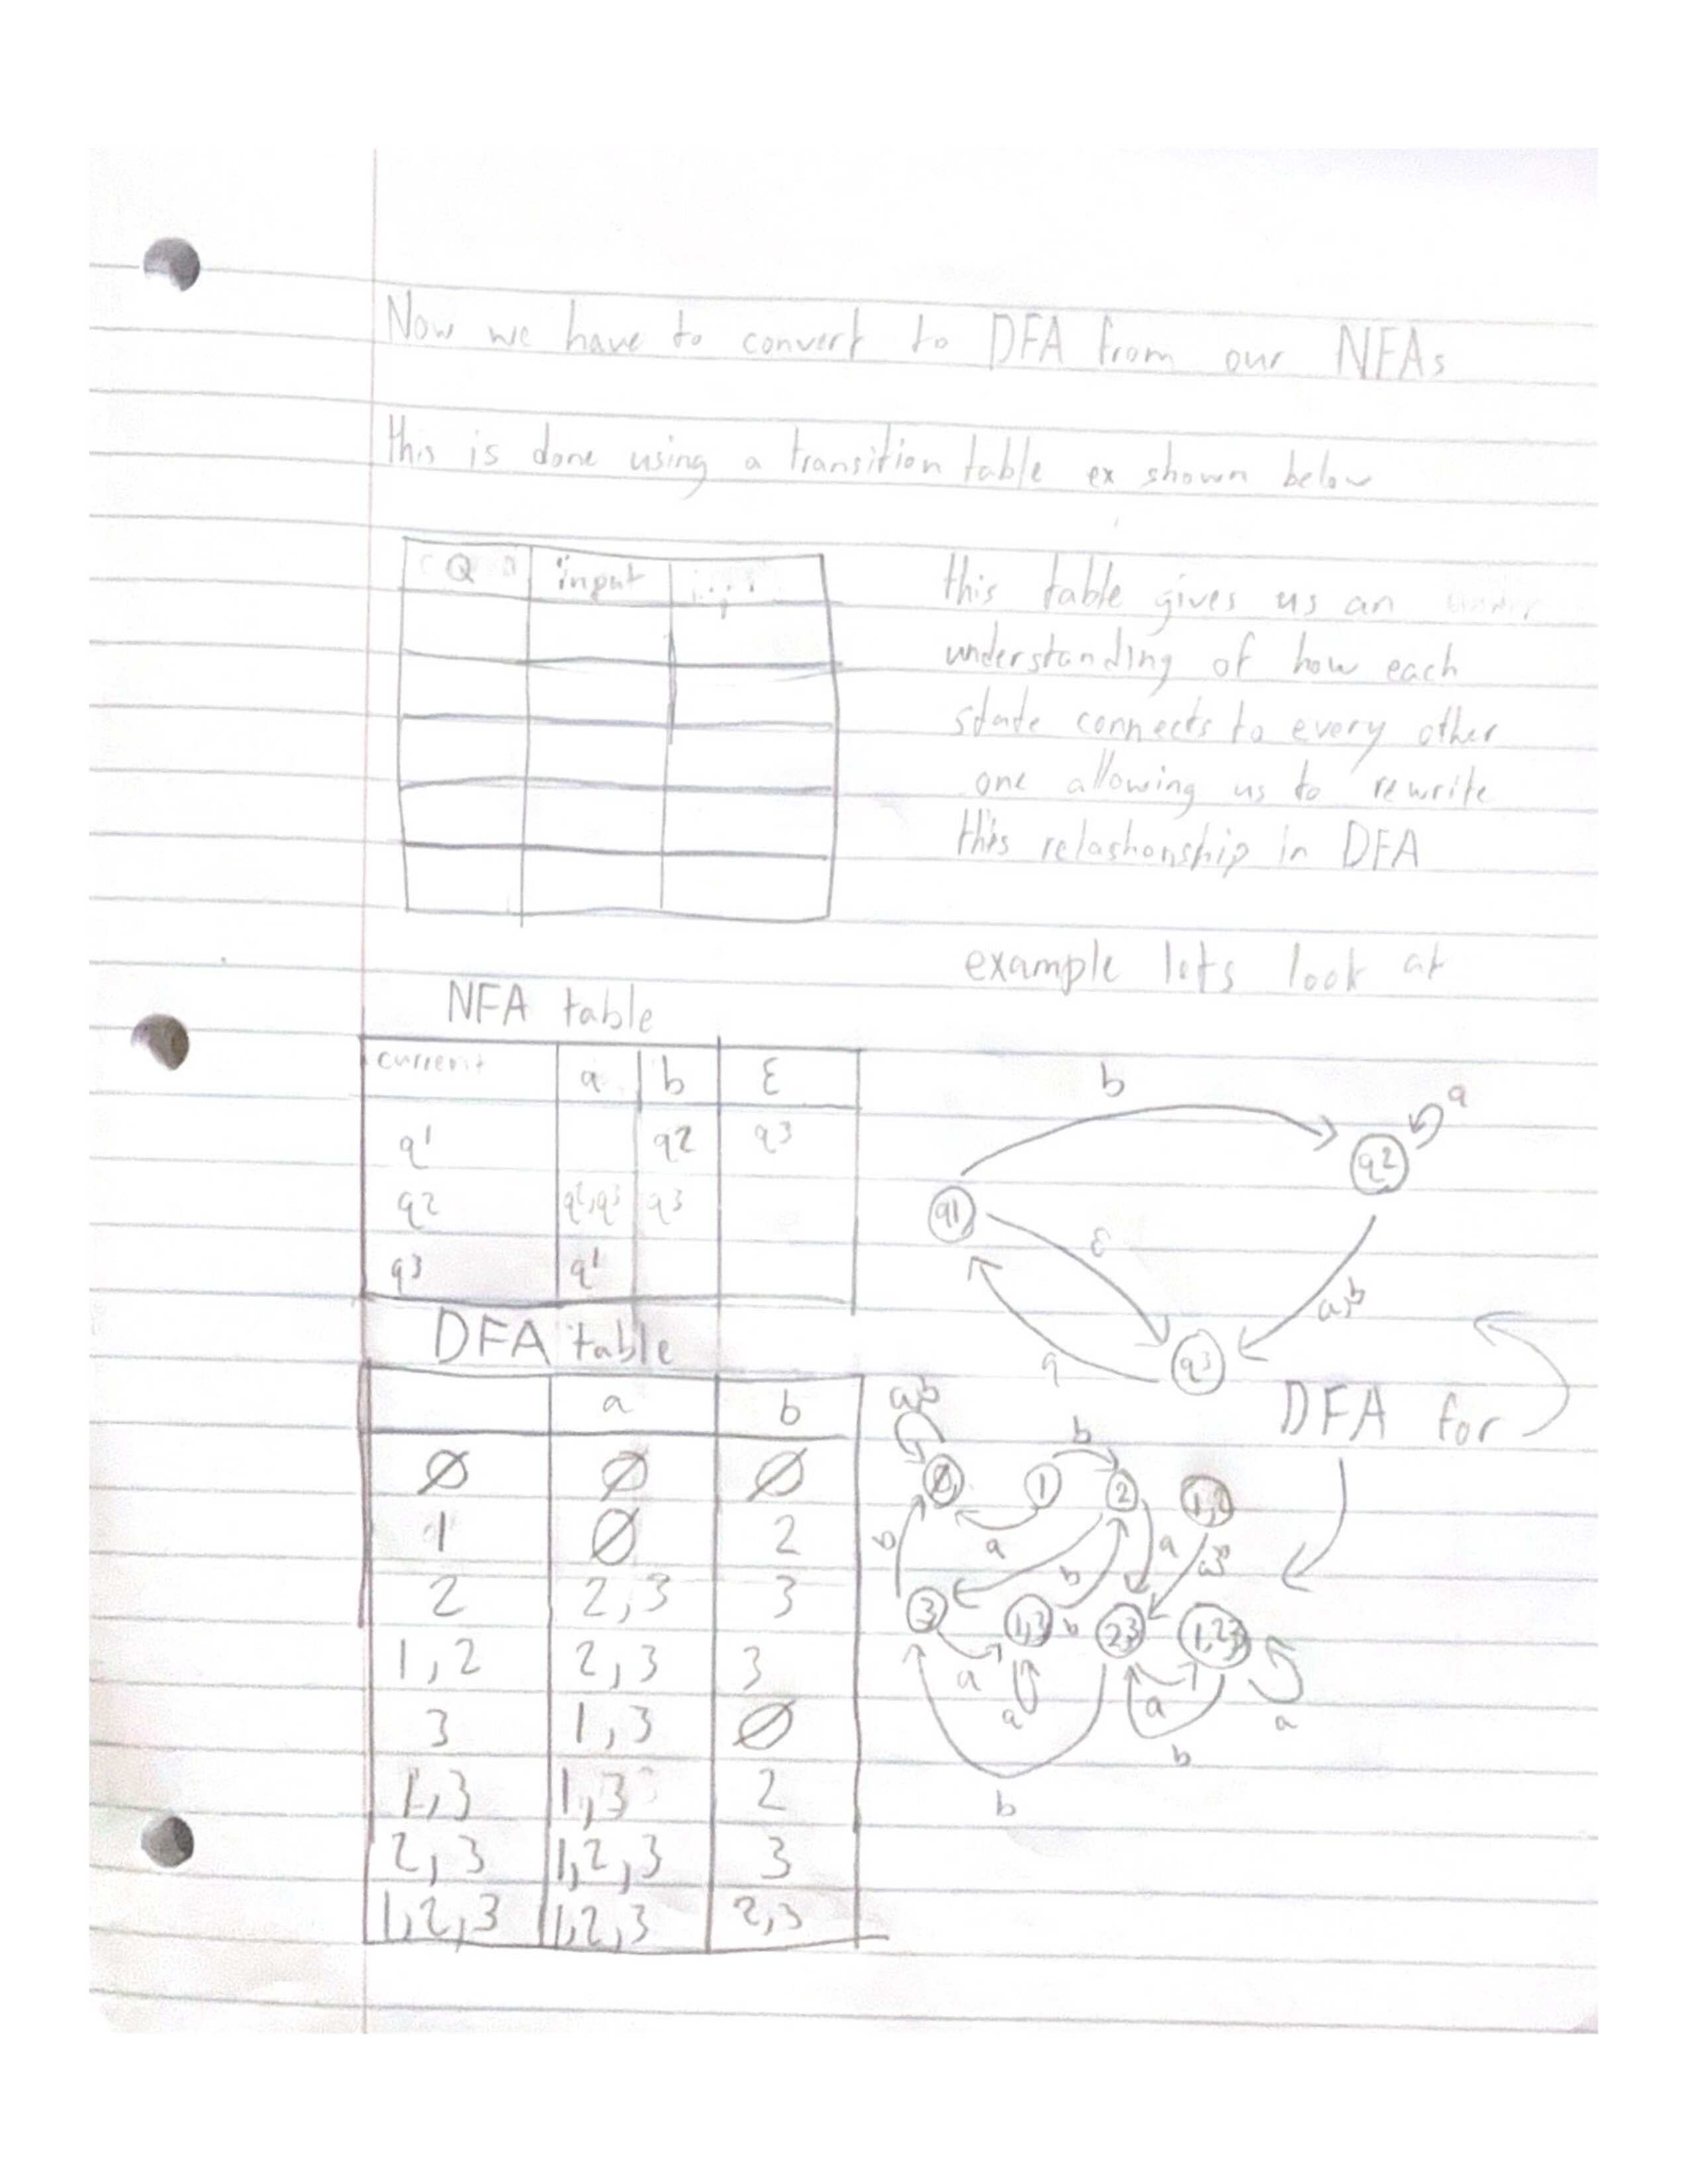 Now we have to convert to DFA from our NFAs
this is done using a transition table ex shown below
Q input
this table gives us an
understanding of how each
state connects to every other
one allowing us to rewrite
this relashonship in DFA
example lets look at
NFA table
current a b ε
q1 q2 q3
q2 q2,q3 q3
q3 q1
b
a
q2
q1
ε
a,b
a
q3
DFA table
a b
∅ ∅ ∅
1 ∅ 2
2 2,3 3
1,2 2,3 3
3 1,3 ∅
1,3 1,3 2
2,3 1,2,3 3
1,2,3 1,2,3 2,3
DFA for
a,b
b
∅ 1 2 1,2
b a b a
3 1,3 b 2,3 1,2,3
a a a a
b
b